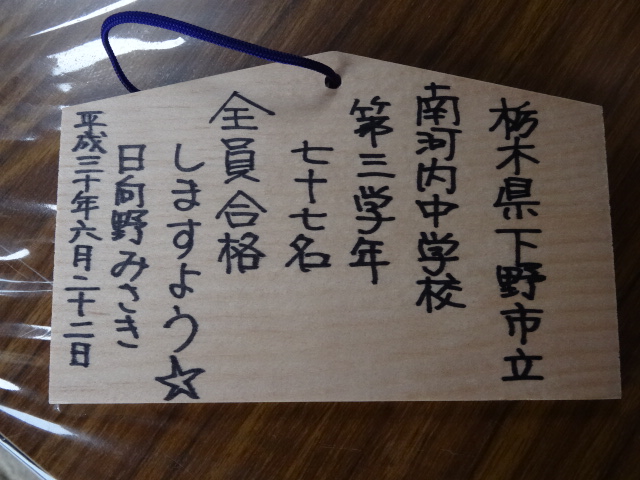 栃木県下野市立
南河内中学校
第三学年
七十七名
全員合格
しますよう☆
日向野みさき
平成三十年六月二十二日